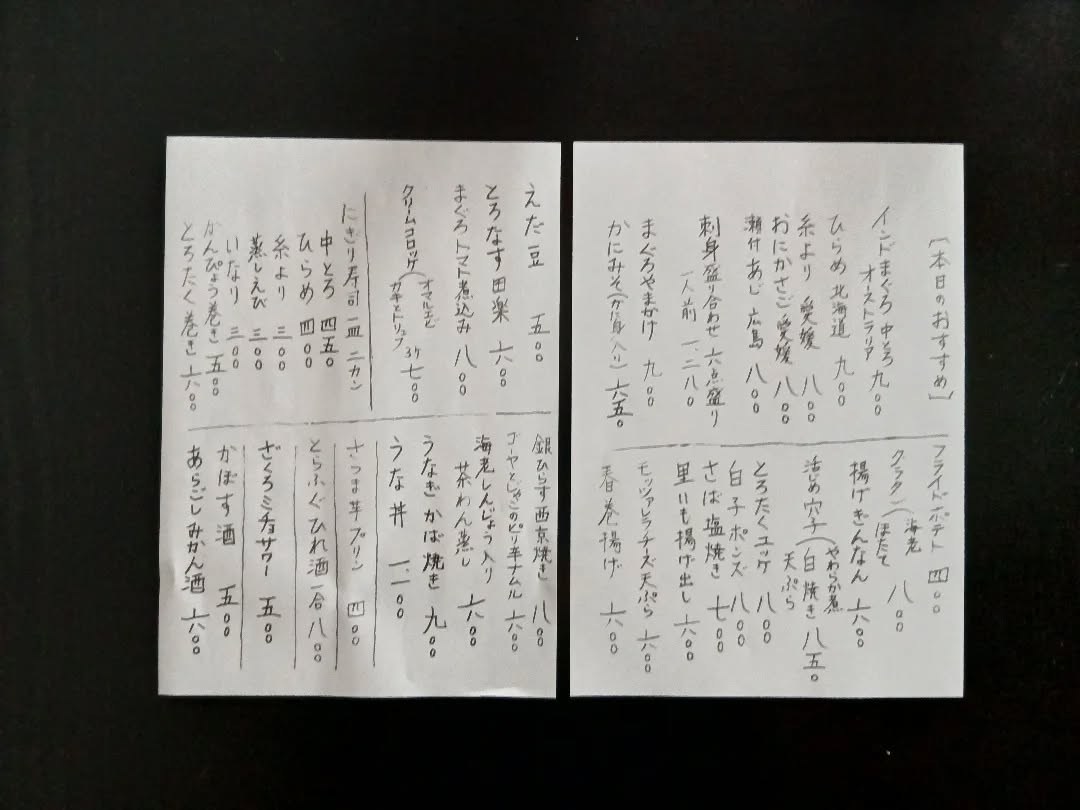 〔本日のおすすめ〕
インドまぐろ 中とろ 九〇〇
オーストラリア
ひらめ 北海道 九〇〇
糸より 愛媛 八〇〇
おにかさご 愛媛 八〇〇
瀬付あじ 広島 八〇〇
刺身盛り合わせ 六点盛り
一人前 一.二八〇
まぐろやまかけ 九〇〇
かにみそ(かに身入り) 六五〇
フライドポテト 四〇〇
クラック(海老
ほたて 八〇〇
揚げぎんなん 六〇〇
活じめ穴子(やわらか煮
白焼き 八五〇
天ぷら
とろたくユッケ 八〇〇
白子ポンズ 八〇〇
さば塩焼き 七〇〇
里いも揚げ出し 六〇〇
モッツァレラチーズ天ぷら 六〇〇
春巻揚げ 六〇〇
えだ豆 五〇〇
とろなす田楽 六〇〇
まぐろトマト煮込み 八〇〇
クリームコロッケ(オマールエビ
カキとトリュフ 3ケ 七〇〇
にぎり寿司 一皿 二カン
中とろ 四五〇
ひらめ 四〇〇
糸より 三〇〇
蒸しえび 三〇〇
いなり 三〇〇
かんぴょう巻き 五〇〇
とろたく巻き 六〇〇
銀ひらす西京焼き 八〇〇
ゴーヤとじゃこのピリ辛ナムル 六〇〇
海老しんじょう入り
茶わん蒸し 六〇〇
うなぎかば焼き 九〇〇
うな丼 一.一〇〇
さつま芋プリン 四〇〇
とらふぐひれ酒 一合 八〇〇
ざくろミチョサワー 五〇〇
かぼす酒 五〇〇
あらごしみかん酒 六〇〇